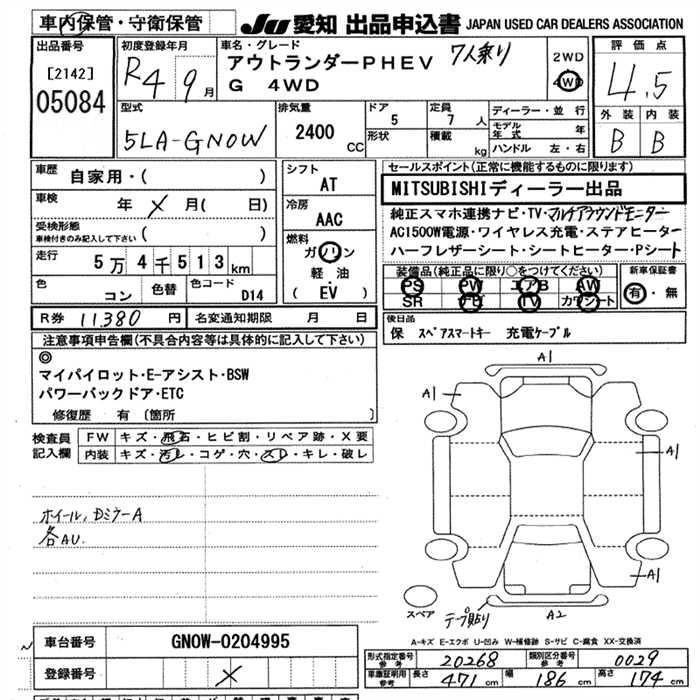 車内保管・守衛保管
JU 愛知 出品申込書 JAPAN USED CAR DEALERS ASSOCIATION
出品番号
[2142]
05084
初度登録年月
R4 9月
車名・グレード
アウトランダーPHEV 7人乗り
G 4WD
2WD
4WD
評価点
4.5
外装 内装
B B
型式
5LA-GN0W
排気量
2400 CC
ドア
5
形状
定員
7 人
積載
kg
ディーラー・並行
モデル年式 年
ハンドル 左・右
車歴
自家用・( )
車検
年 × 月( 日)
受検形態
車検付きのみ記入して下さい ( )
走行
5万4千513km
色
コン
色替
色コード
D14
シフト
AT
冷房
AAC
燃料
ガソリン
軽・油
( EV )
セールスポイント(正常に機能するものに限ります)
MITSUBISHIディーラー出品
純正スマホ連携ナビ・TV・マルチアラウンドモニター
AC1500W電源・ワイヤレス充電・ステアヒーター
ハーフレザーシート・シートヒーター・Pシート
装備品(純正品に限り○をつけてください)
PS PW エアB AW
SR ナビ TV カワシート
新車保証書
有・無
R券 11,380 円
名変通知期限 月 日
後日品
保 スペアスマートキー 充電ケーブル
注意事項申告欄(不具合内容等は具体的に記入して下さい)
◎
マイパイロット・E-アシスト・BSW
パワーバックドア・ETC
修復歴 有 〔箇所
検査員記入欄
FW キズ・飛石・ヒビ割・リペア跡・X要
内装 キズ・汚レ・コゲ・穴・スレ・キレ・破レ
ホイール、DミラーA
各AU.
A1
A1
A1
A1
A2
スペア
テープ貼り
A-キズ E-エクボ U-凹み W-補修跡 S-サビ C-腐食 XX-交換済
車台番号
GN0W-0204995
登録番号
×
形式指定番号
参考
20268
類別区分番号
参考
0029
車庫証明用
参考
長さ
471 cm
幅
186 cm
高さ
174 cm